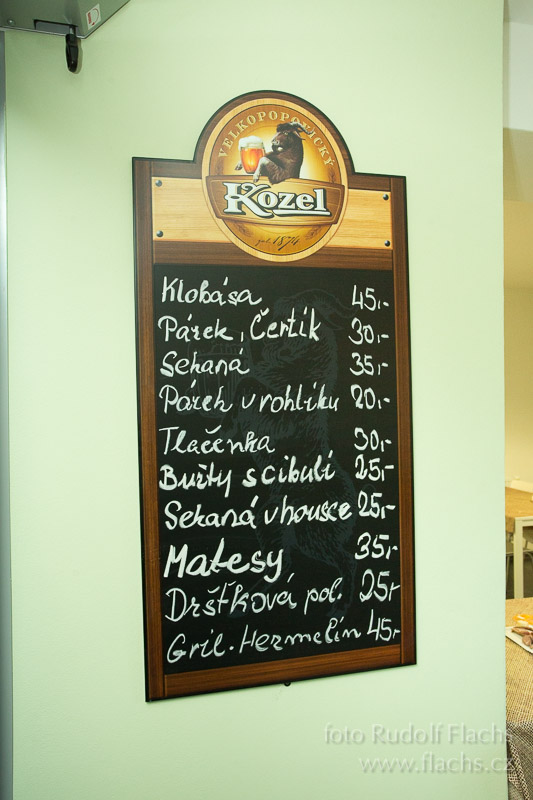 VELKOPOPOVICKÝ
Kozel
1874
Klobása 45,-
Párek, Čertík 30,-
Sekaná 35,-
Párek v rohlíku 20,-
Tlačenka 30,-
Buřty s cibulí 25,-
Sekaná v housce 25,-
Matesy 35,-
Dršťková pol. 25,-
Gril. Hermelín 45,-
foto Rudolf Flachs
www.flachs.cz